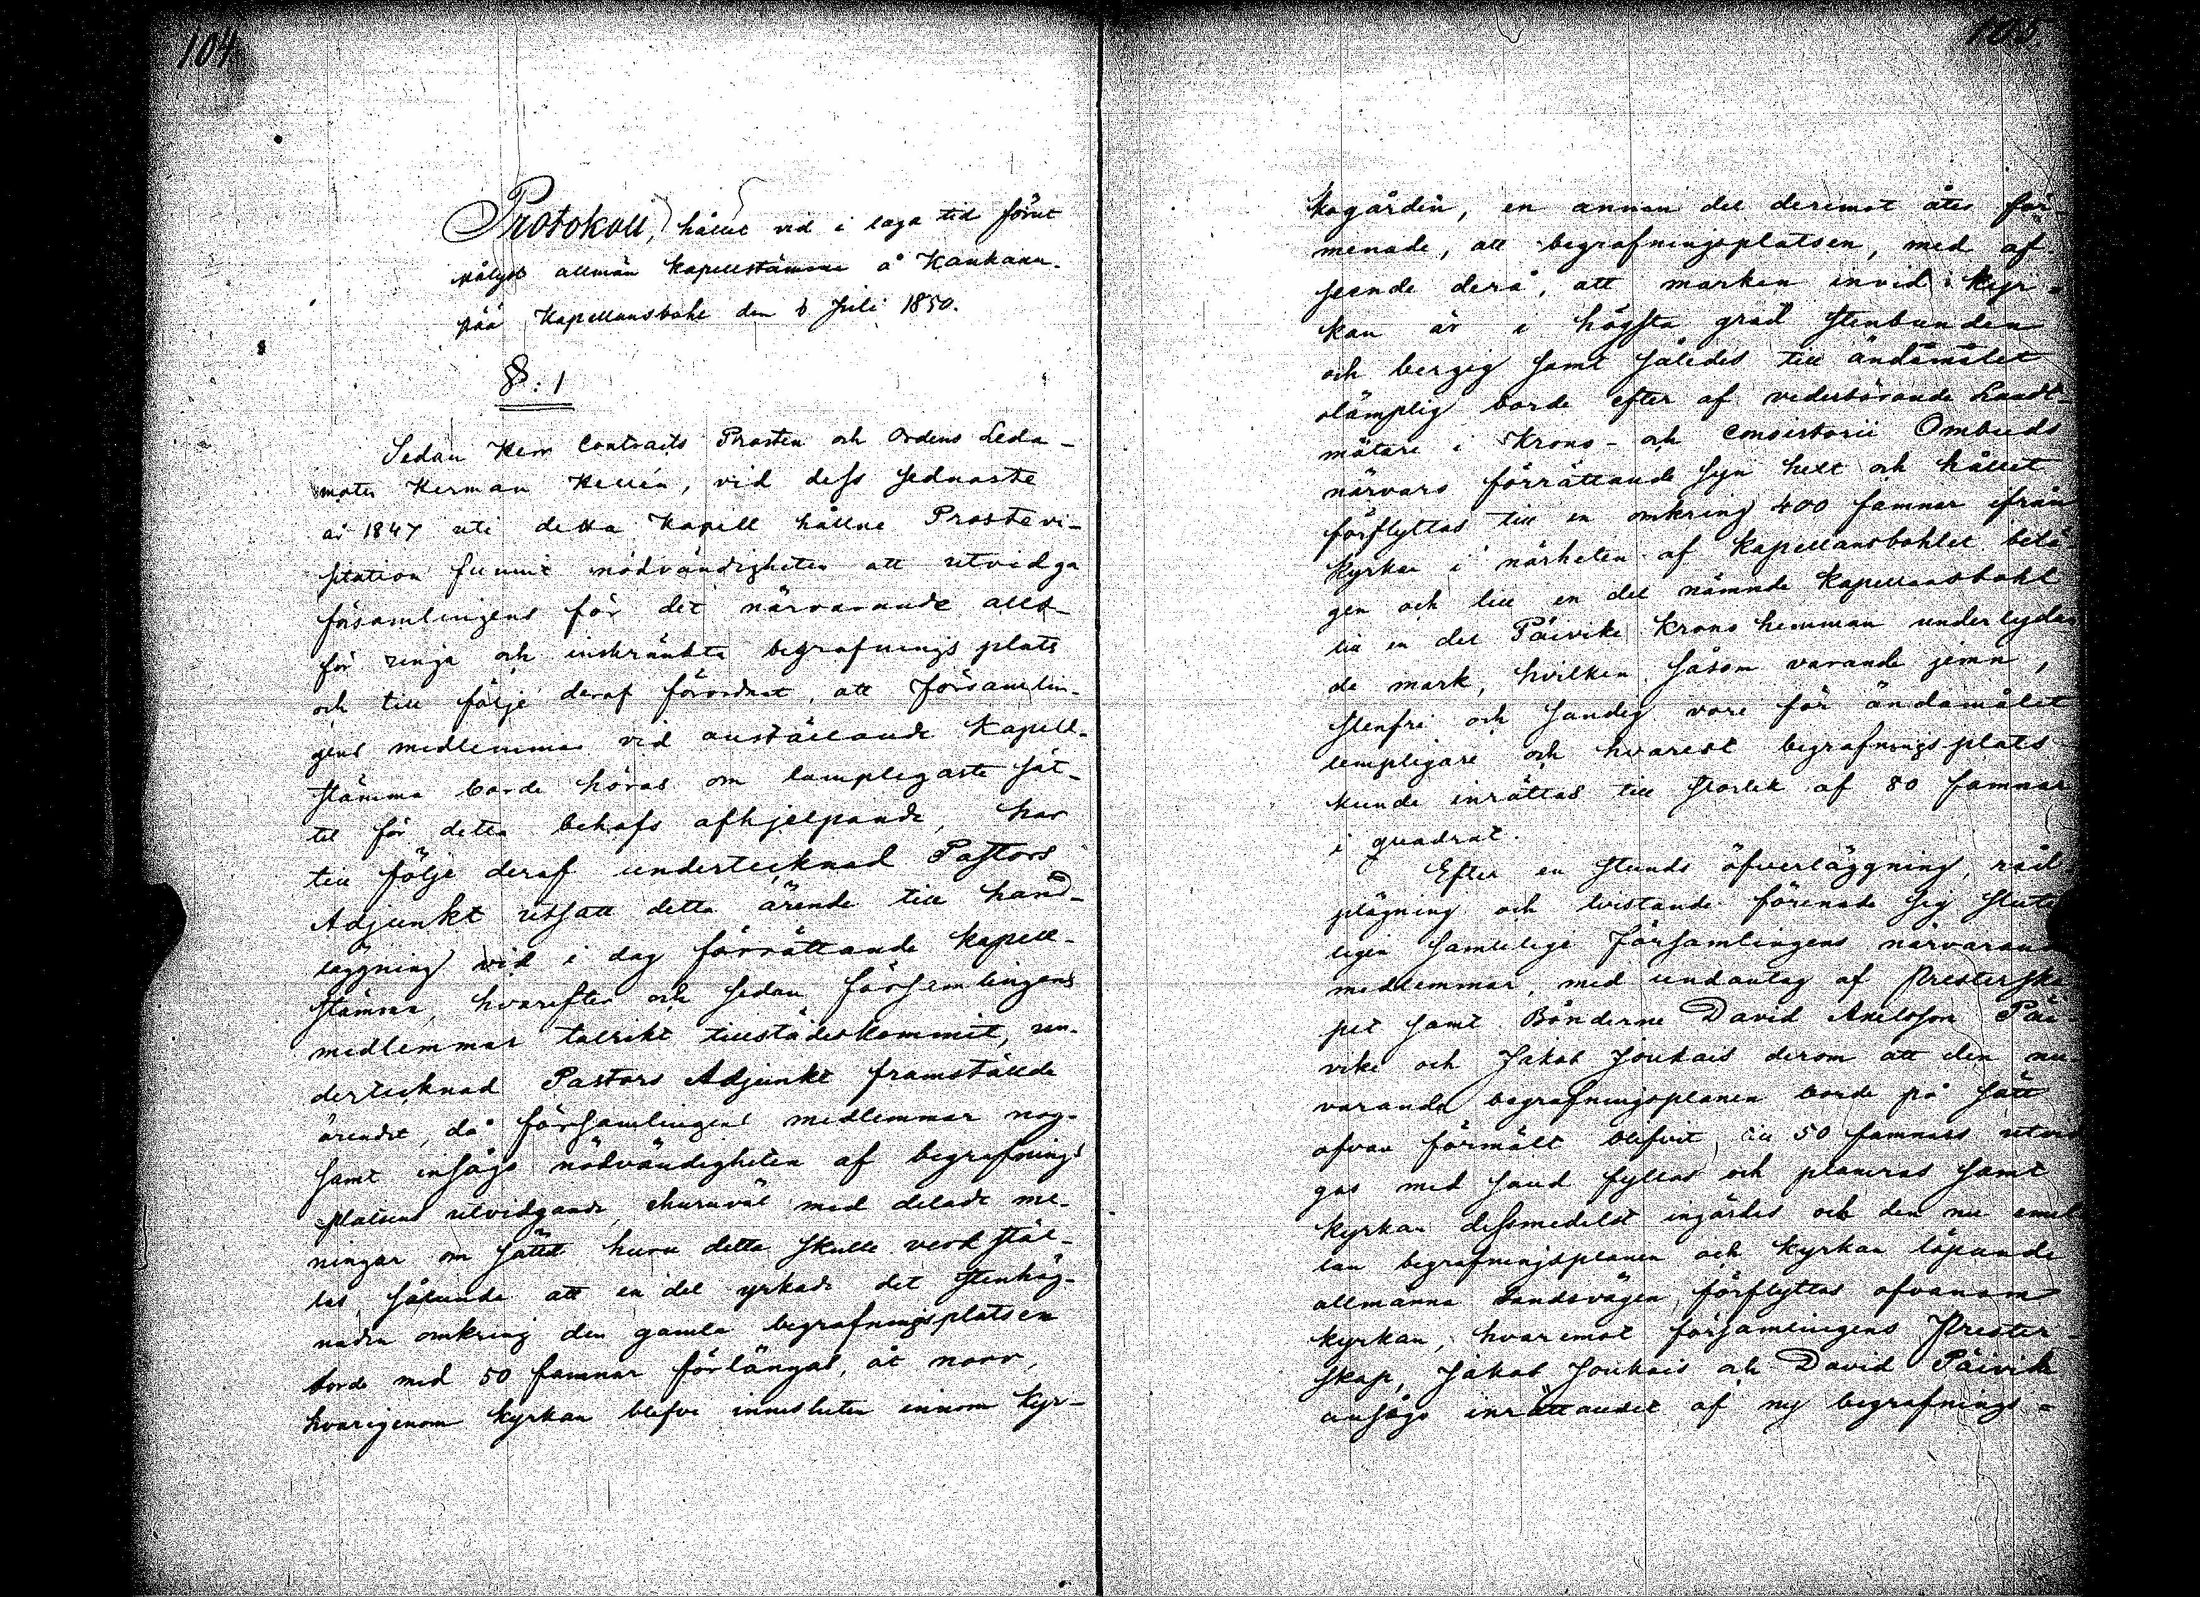 104.
Protokoll, hållet vid i laga tid förut
pålyst allmän Kapellstämma å Kankaan-
pää Kapellansbohl den 6 Juli 1850.
§: 1
Sedan Herr Contracts Prosten och Ordens Leda-
moten Herman Hellén, vid dess sednaste
år 1847 uti detta Kapell hållne Prostevi-
sitation funnit nödvändigheten att utvidga
församlingens för det närvarande allt-
för ringa och inskränkta begrafnings plats
och till följe deraf förordnat, att församlin-
gens medlemmar vid anställande Kapell-
stämma borde höras om lämpligaste sät-
tet för detta behofs afhjelpande, har
till följe deraf undertecknad Pastors
Adjunkt utsatt detta ärende till hand-
läggning vid i dag förrättande Kapell-
stämma, hvarefter och sedan församlingens
medlemmar talrikt tillstädeskommit, un-
dertecknad Pastors Adjunkt framställde
ärendet, då församlingens medlemmar nog-
samt insågo nödvändigheten af begrafnings
platsens utvidgande, ehuruväl med delade me-
ningar om sättet huru detta skulle verkstäl-
las, sålunda att en del yrkade det stenhäg-
naden omkring den gamla begrafningsplatsen
borde med 50 famnar förlängas, åt norr,
hvarigenom kyrkan blefve innesluten innom Kyr-
105.
kogården, en annan del deremot åter för-
menade, att begrafningsplatsen, med af-
seende derå, att marken invid kyr-
kan är i högsta grad stenbunden
och bergig samt således till ändamålet
olämplig borde efter af vederbörande Landt-
mätare i Krono- och Consistorii Ombuds
närvaro förrättande syn helt och hållet
förflyttas till en omkring 400 famnar ifrån
kyrkan i närheten af Kapellansbohlet belä-
gen och till en del nämnde Kapellansbohl
till en del Päivike Krono hemman underlydan
de mark, hvilken såsom varande jemn,
stenfri och sandig vore för ändamålet
lempligare och hvarest begrafnings plats
kunde inrättas till storlek af 80 famnar
i quadrat.
Efter en stunds öfverläggning, råd
plägning och tvistande förenade sig slut
ligen samtelige församlingens närvarand
medlemmar, med undantag af Presterska
pet samt Bönderne David Axelsson Päi
vike och Jakob Joukais derom att den nu
varande begrafningsplanen borde på sätt
ofvan förmält blifvit, till 50 famnars utvid
gas med sand fyllas och planeras samt
kyrkan dessmedelst ingärdes och den nu emel
lan begrafningsplanen och kyrkan löpande
allmänna Landsvägen förflyttas ofvanom
kyrkan, hvaremot församlingens Prester-
skap, Jakob Joukais och David Päivik
ansågo inrättandet af ny begrafnings-